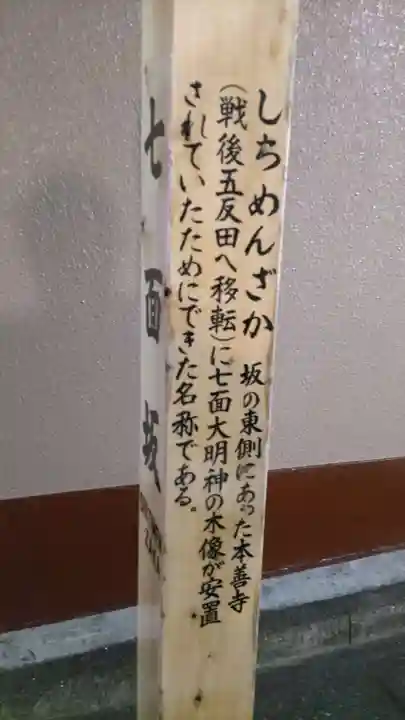 しちめんざか 坂の東側にあった本善寺
(戦後五反田へ移転)に七面大明神の木像が安置
されていたためにできた名称である。
七面坂
ZAKA